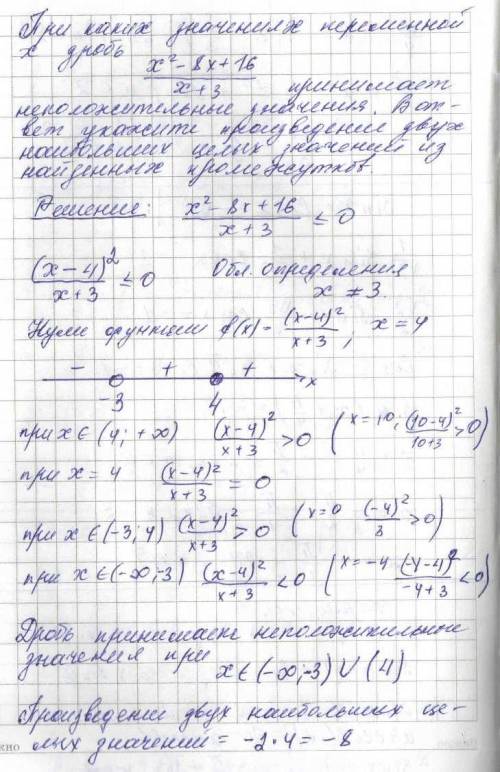 При каких значениях переменной
x дробь
x² - 8x + 16 / x + 3 принимает
неположительные значения. В от-
вет укажите произведение двух
наибольших целых значений из
найденных промежутков.
Решение: x² - 8x + 16 / x + 3 ≤ 0
(x - 4)² / x + 3 ≤ 0 Обл. определения
x ≠ 3.
Нули функции f(x) = (x-4)² / x+3 , x = 4
- + +
-3 4 x
при x ∈ (4; +∞) (x-4)² / x+3 > 0 (x = 10; (10-4)² / 10+3 > 0)
при x = 4 (x-4)² / x+3 = 0
при x ∈ (-3; 4) (x-4)² / x+3 > 0 (x=0 (-4)² / 3 > 0)
при x ∈ (-∞; -3) (x-4)² / x+3 < 0 (x = -4 (-4-4)² / -4+3 < 0)
Дробь принимает неположительное
значения при
x ∈ (-∞; -3) ∪ (4)
Произведение двух наибольших це-
лых значений = -2·4 = -8